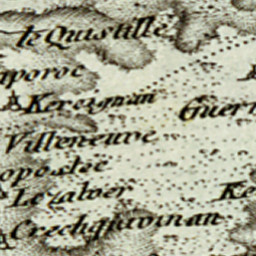 le Quistille
aporoc
Kereignan
Guer
Villeneuve
opostec
Lezalver
Ke
Crechquivinan